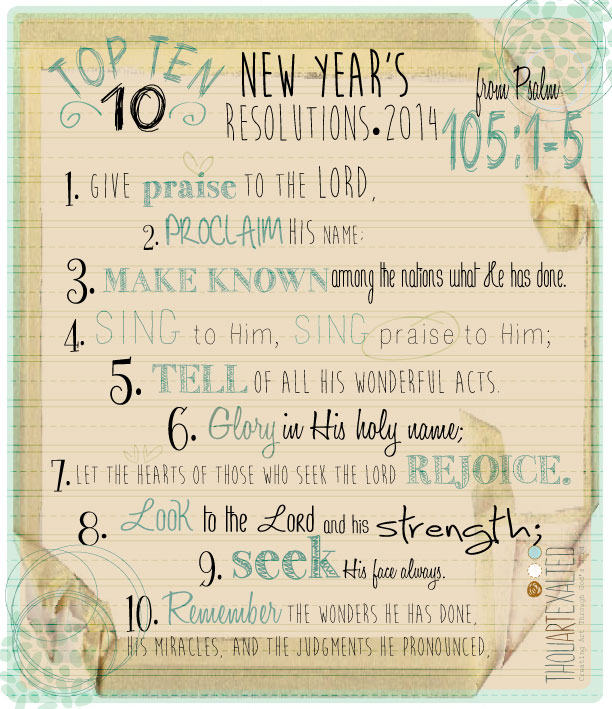 TOP TEN
10
NEW YEAR'S
RESOLUTIONS•2014
from Psalm
105:1-5
1. GIVE praise TO THE LORD,
2. PROCLAIM HIS NAME;
3. MAKE KNOWN among the nations what He has done.
4. SING to Him, SING praise to Him;
5. TELL OF ALL HIS WONDERFUL ACTS.
6. Glory in His holy name;
7. LET THE HEARTS OF THOSE WHO SEEK THE LORD REJOICE.
8. Look to the Lord and his strength;
9. seek His face always.
10. Remember THE WONDERS HE HAS DONE,
HIS MIRACLES, AND THE JUDGMENTS HE PRONOUNCED,
THOUARTEXALTED
Creating Art Through God's